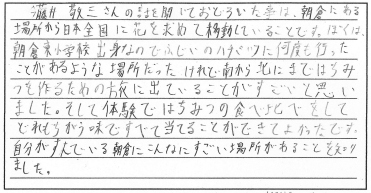 藤井 敬三さんの話を聞いておどろいた事は、朝倉にある
場所から日本全国に花を求めて移動していることです。ぼくは、
朝倉東小学校出身なのでふじいのハチミツに何度も行った
ことがあるような場所だったけれど南から北にまではちみ
つを作るための旅に出ていることがすごいと思い
ました。そして体験ではちみつの食べ比べをして
どれもちがう味ですべて当てることができてよかったです。
自分がすんでいる朝倉にこんなにすごい場所があることを知り
ました。